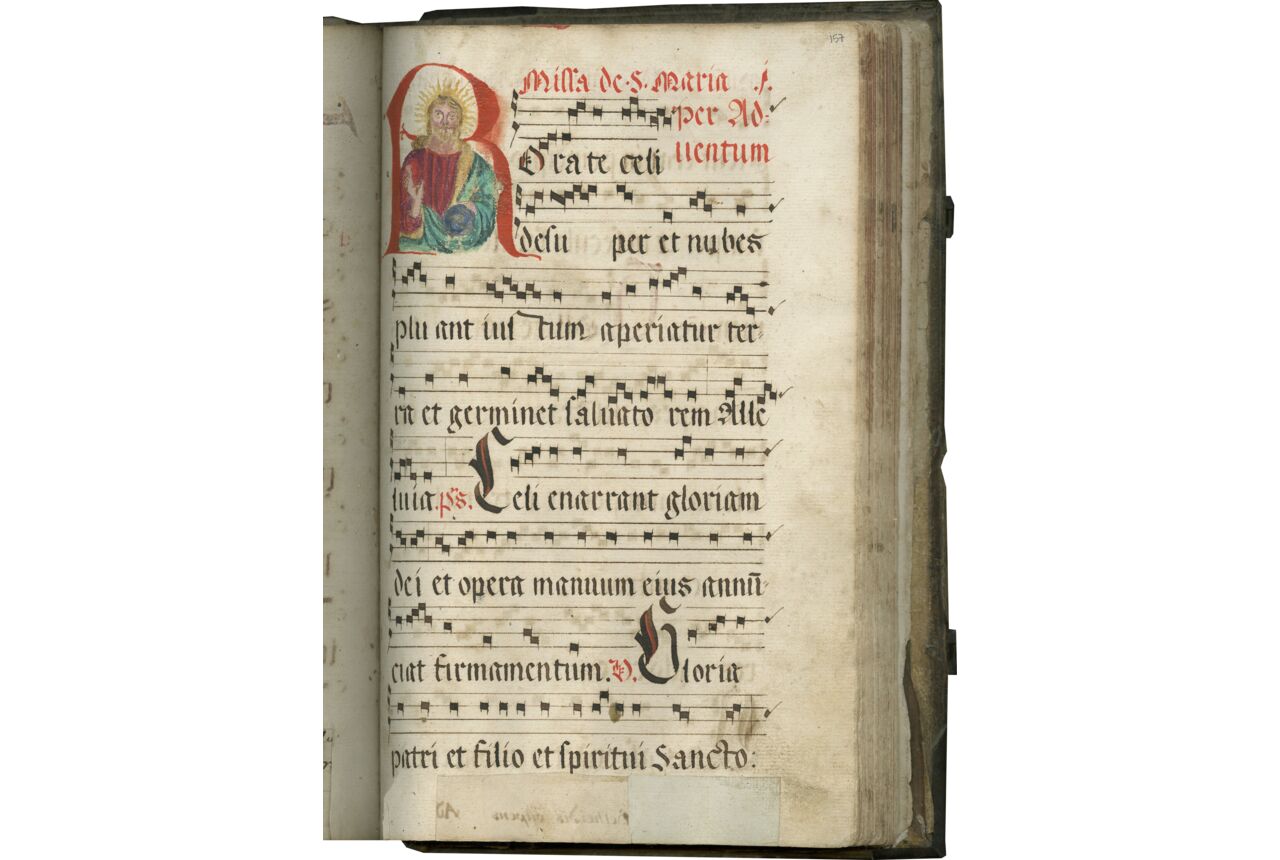 157
Missa de. S. Maria j.
per Ad:
uentum
Rorate celi
desu per et nubes
plu ant iustum aperiatur ter:
ra et germinet saluato rem Alle
luia. ps. Celi enarrant gloriam
dei et opera manuum eius annū:
ciat firmamentum. V. Gloria
patri et filio et spiritui Sancto: